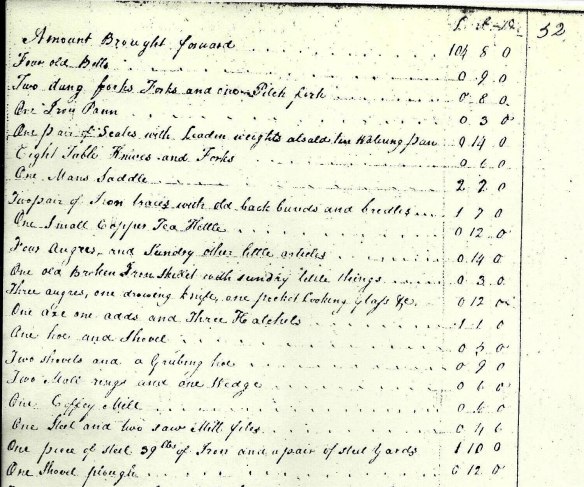 L. S. D. 52
Amount Brought forward 104 8 0
Four old Bells 0 9 0
Two dung forks Forks and one Pitch fork 0 8 0
One Iron Pann 0 3 0
One pair of Scales with Leaden weights also old tin Watering pan 0 14 0
Eight Table Knives and Forks 0 6 0
One Mans Saddle 2 2 0
Two pair of Iron traces with old back bands and bridles 1 7 0
One Small Copper Tea Kettle 0 12 0
Four Augres, and Sundry other little articles 0 14 0
One old Broken Iron Skillet with sundry little things 0 3 0
Three augres, one drawing knife, one pocket Looking Glass &c. 0 12 0
One axe one adds and Three Hatchels 1 1 0
One hoe and Shovel 0 3 0
Two shovels and a Grubing hoe 0 9 0
Two Mall rings and one Wedge 0 6 0
One Coffey Mill 0 6 0
One and two saw Mill files 0 4 6
One piece of steel 39 lbs of Iron and a pair of steel Yards 1 10 0
One Shovel plough 0 12 0